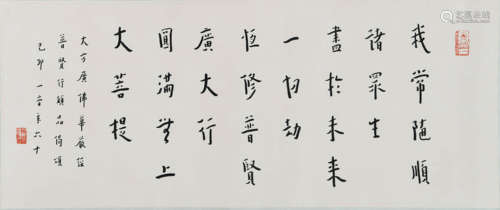 我常隨順
諸眾生
盡於未來
一切劫
恆修普賢
廣大行
圓滿無上
大菩提
大方廣佛華嚴經
普賢行願品偈頌
己卯一音年六十